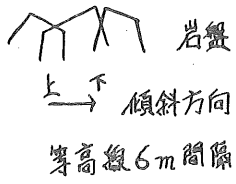 岩盤
上 下
傾斜方向
等高線6m間隔